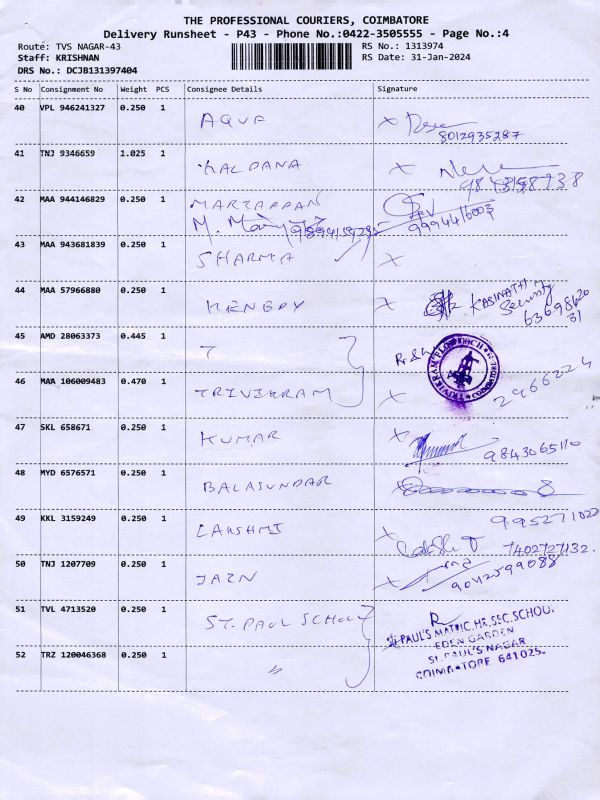 THE PROFESSIONAL COURIERS, COIMBATORE
Delivery Runsheet - P43 - Phone No.:0422-3505555 - Page No.:4
Route: TVS NAGAR-43 RS No.: 1313974
Staff: KRISHNAN RS Date: 31-Jan-2024
DRS No.: DCJB131397404
S No Consignment No Weight PCS Consignee Details Signature
40 VPL 946241327 0.250 1 AQUA
8012935287
41 TNJ 9346659 1.025 1 KALPANA
42 MAA 944146829 0.250 1 MARIAPPAN
9994416003
43 MAA 943681839 0.250 1 SHARMA
44 MAA 57966880 0.250 1 KENEDY
KASINATH
Security
63698620
31
45 AMD 28063373 0.445 1 T
46 MAA 106009483 0.470 1 TRIVIKRAM
2466224
47 SKL 658671 0.250 1 KUMAR
9843065110
48 MYD 6576571 0.250 1 BALASUNDAR
49 KKL 3159249 0.250 1 LAKSHMI
995271022
7402727132.
50 TNJ 1207709 0.250 1 JAIN
9042599088
51 TVL 4713520 0.250 1 ST. PAUL SCHOOL
52 TRZ 120046368 0.250 1 〃
ST.PAUL'S MATRIC.HR.SEC.SCHOOL
EDEN GARDEN
ST.PAUL'S NAGAR
COIMBATORE 641025.